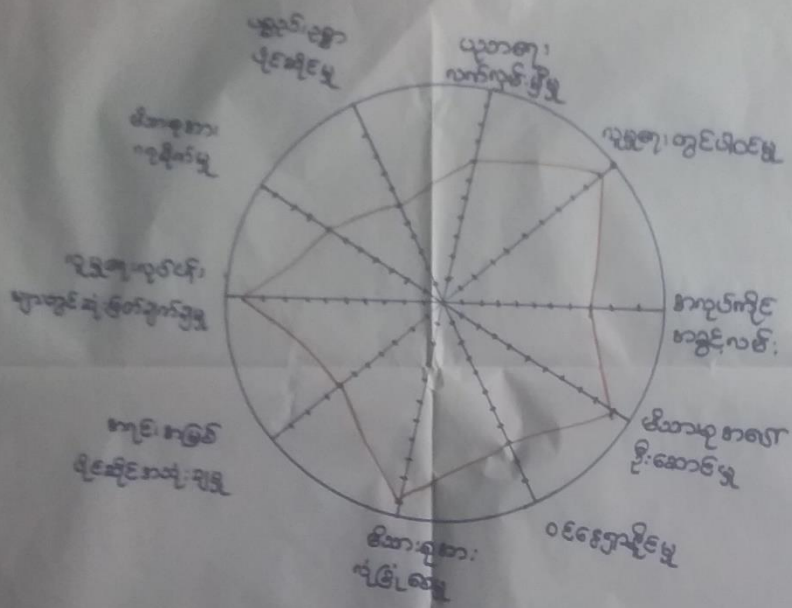 ပစ္စည်းဥစ္စာ
ပိုင်ဆိုင်မှု
ပညာရေး
လက်လှမ်းမှီမှု
လူမှုရေးတွင်ပါဝင်မှု
အလုပ်ကိုင်
အခွင့်လမ်း
မိသားစုအပေါ်
ဦးဆောင်မှု
ဝင်ငွေရှာနိုင်မှု
မိသားစုအား
လုံခြုံစေမှု
ပိုင်ဆိုင်အသုံးချမှု
လူမှုရေးလုပ်ငန်း
များတွင်ဆုံးဖြတ်ချက်ချမှု
မိသားစုအား